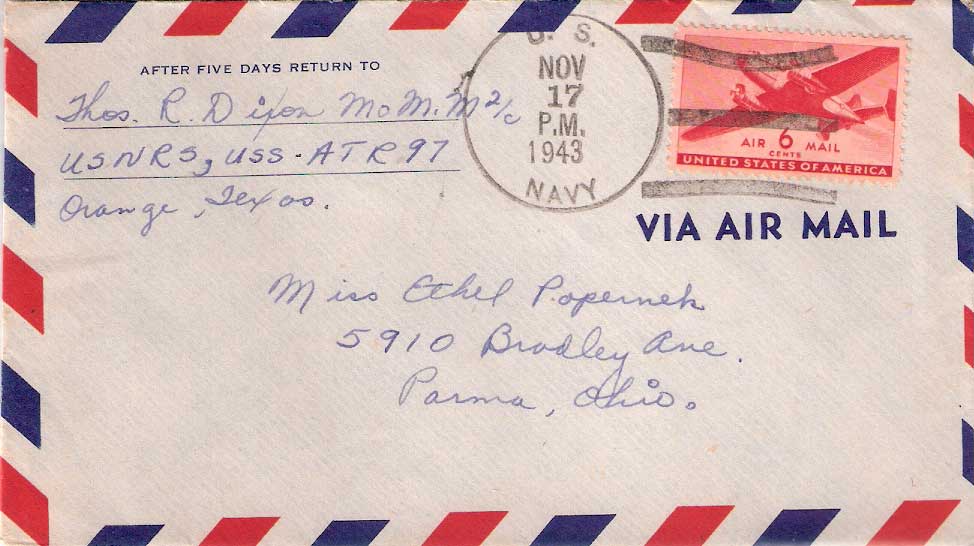 AFTER FIVE DAYS RETURN TO
Thos. R. Dixon Mo M.M 2/c
USNRS, USS-ATR 97
Orange, Texas.
U. S.
NOV
17
P.M.
1943
NAVY
AIR 6 MAIL
CENTS
UNITED STATES OF AMERICA
VIA AIR MAIL
Miss Ethel Popernek
5910 Bradley Ave.
Parma, Ohio.